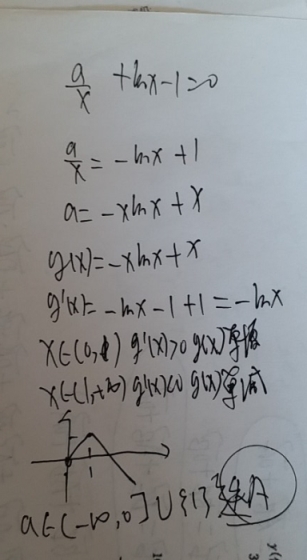 a/x + lnx - 1 = 0
a/x = -lnx + 1
a = -xlnx + x
g(x) = -xlnx + x
g'(x) = -lnx - 1 + 1 = -lnx
x∈(0,1) g'(x)>0 g(x)单增
x∈(1,+∞) g'(x)<0 g(x)单减
a∈(-∞,0]∪{1} 选A